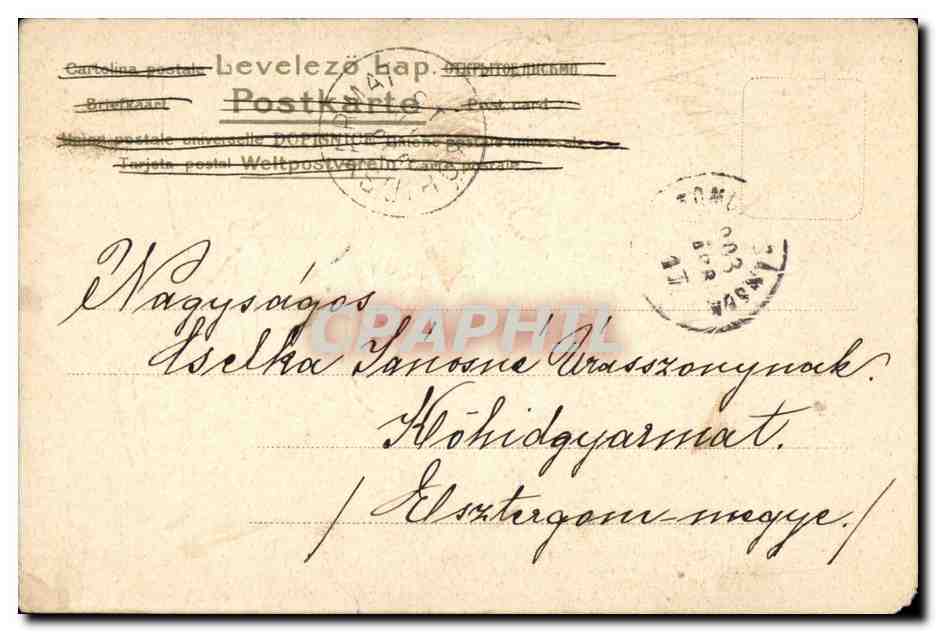 Cartolina postale Levelező Lap. Открытое письмо
Briefkaart Postkarte Post card
Union postale universelle DOPISNICE Unione postale universale
Tarjeta postal Weltpostverein Carte postale
Nagyságos
Cselka Jánosné Úrasszonynak.
Kőhidgyarmat.
/ Esztergom-megye. /
CPAPHIL